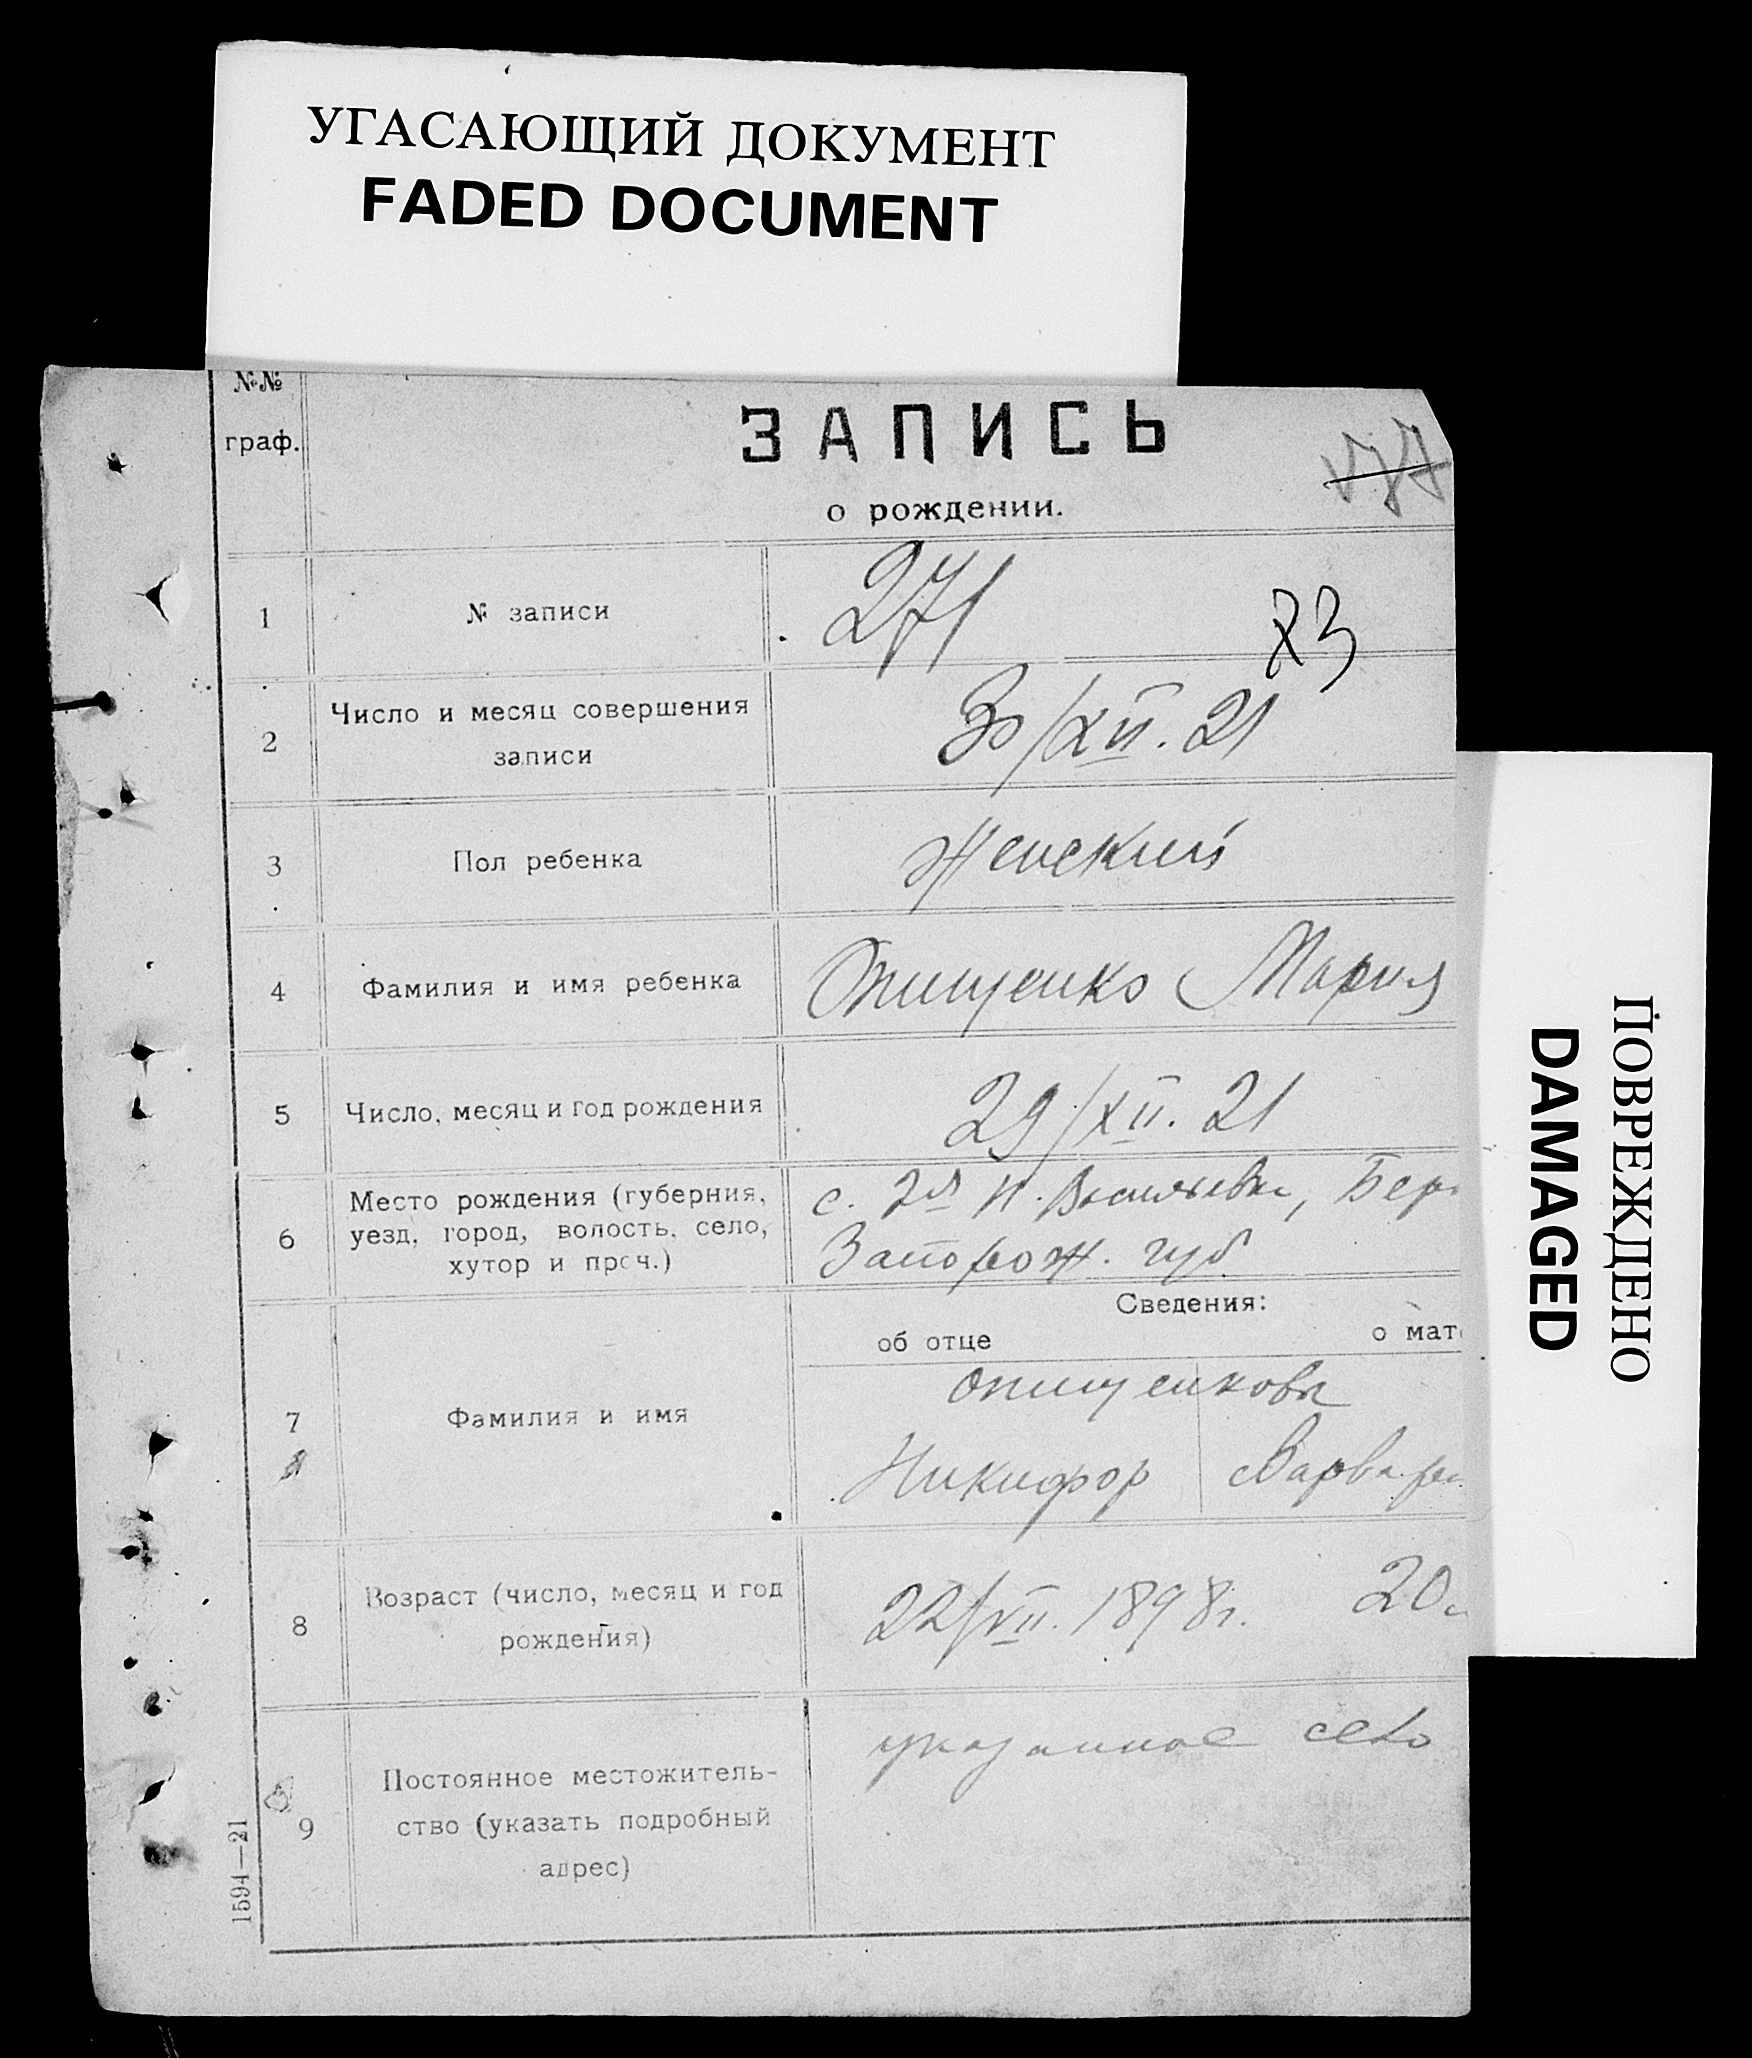 УГАСАЮЩИЙ ДОКУМЕНТ
FADED DOCUMENT
№№
граф.
ЗАПИСЬ
о рождении.
1 № записи 271
83
2 Число и месяц совершения
записи
30/XII. 21
3 Пол ребенка Женский
4 Фамилия и имя ребенка Онищенко Мария
5 Число, месяц и год рождения 29/XII. 21
6 Место рождения (губерния,
уезд, город, волость, село,
хутор и проч.)
с. 2я Н. Васильевка, Бер
Запорож. губ
Сведения:
об отце о мат
7 Фамилия и имя
Онищенковы
Никифор Варвара
8 Возраст (число, месяц и год
рождения)
22/VII. 1898г. 20
9 Постоянное местожитель-
ство (указать подробный
адрес)
указанное село
1594—21
ПОВРЕЖДЕНО
DAMAGED